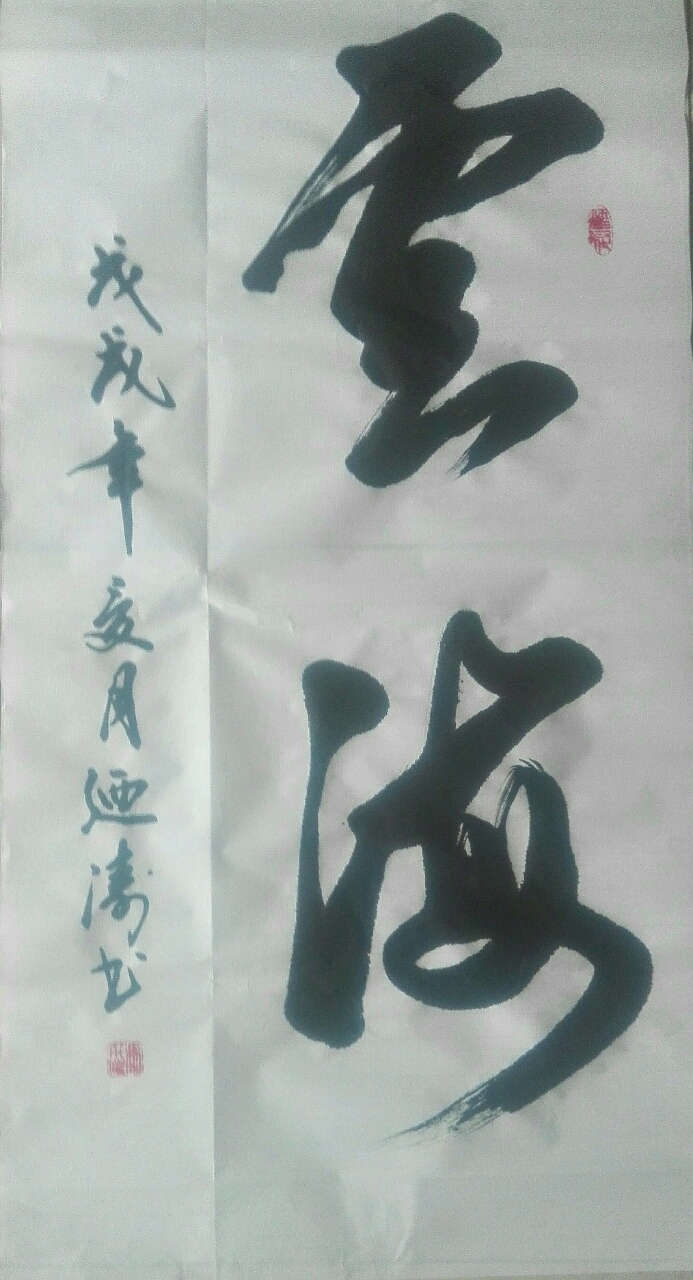 雲海
戊戌年夏月廼濤书